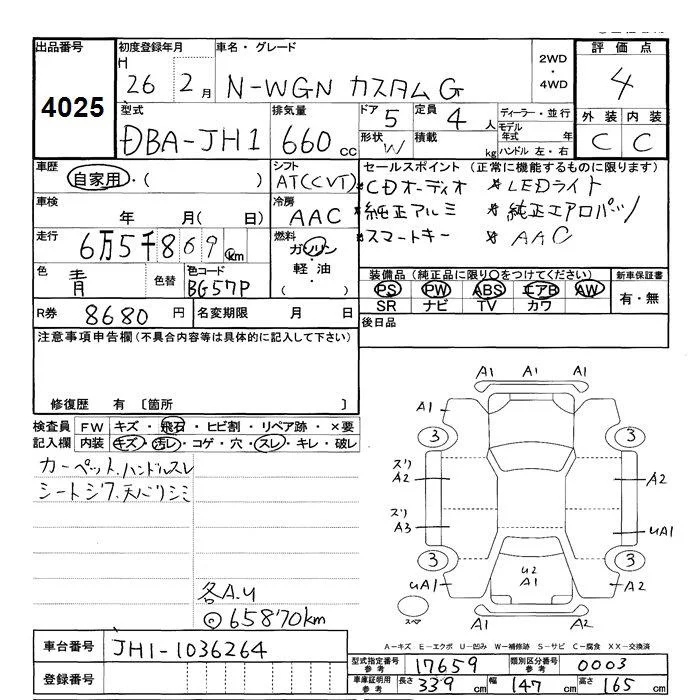 出品番号 4025
初度登録年月 H 26 2月
車名・グレード N-WGN カスタムG
2WD・4WD
評価点 4
型式 DBA-JH1
排気量 660 cc
ドア 5
定員 4人
形状 W
積載 kg
ディーラー・並行
モデル年式 年
ハンドル 左・右
外装 内装
C C
車歴 自家用・( )
シフト AT(CVT)
セールスポイント (正常に機能するものに限ります)
*CDオーディオ *LEDライト
*純正アルミ *純正エアロパーツ
*スマートキー *AAC
車検 年 月(日)
冷房 AAC
走行 6万5千869km
燃料 ガソリン・軽油・( )
色 青 色替
色コード BG57P
装備品(純正品に限り○をつけてください)
PS PW ABS エアB AW
SR ナビ TV カワ
新車保証書 有・無
R券 8680円
名変期限 月 日
後日品
注意事項申告欄(不具合内容等は具体的に記入して下さい)
修復歴 有 〔箇所 〕
検査員記入欄
FW キズ・飛石・ヒビ割・リペア跡・×要
内装 キズ・汚レ・コゲ・穴・スレ・キレ・破レ
カーペット、ハンドルスレ
シートシワ、天バリシミ
各A.U
◎65870km
A1 A1 A1
A1
3 3
ズリ
A2 A2
ズリ
A3 UA1
3 3
UA1 A2
U2
A1
スペア
A1 A2
A-キズ E-エクボ U-凹み W-補修跡 S-サビ C-腐食 XX-交換済
車台番号 JH1-1036264
登録番号
型式指定番号 参考 17659
類別区分番号 参考 0003
車庫証明用 参考 長さ 339 cm 幅 147 cm 高さ 165 cm